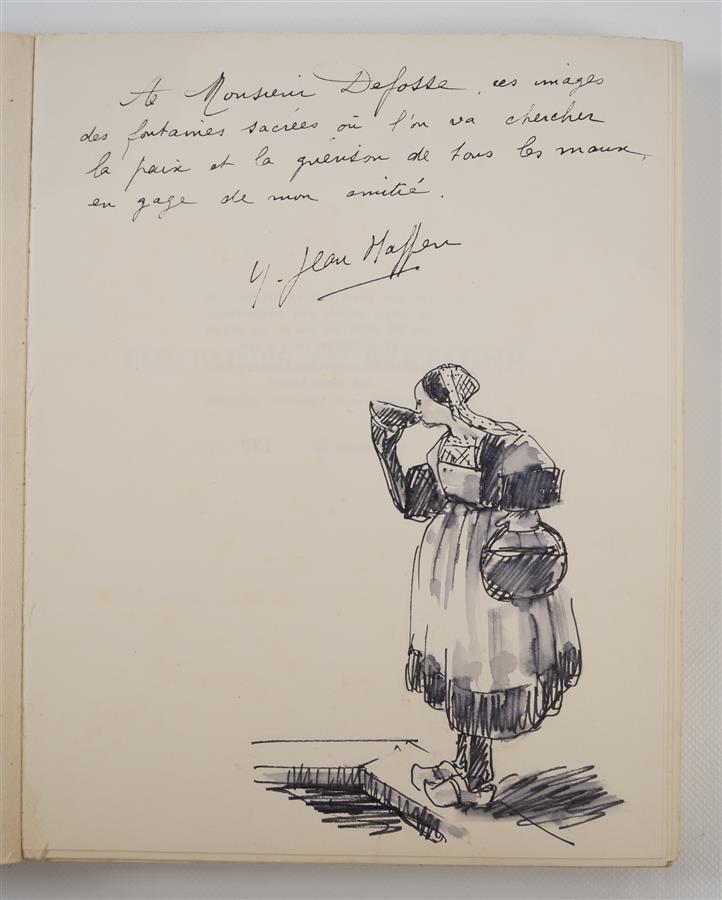 A Monsieur Defosse, ces images
des fontaines sacrées où l'on va chercher
la paix et la guérison de tous les maux,
en gage de mon amitié.
Y. Jean Haffen